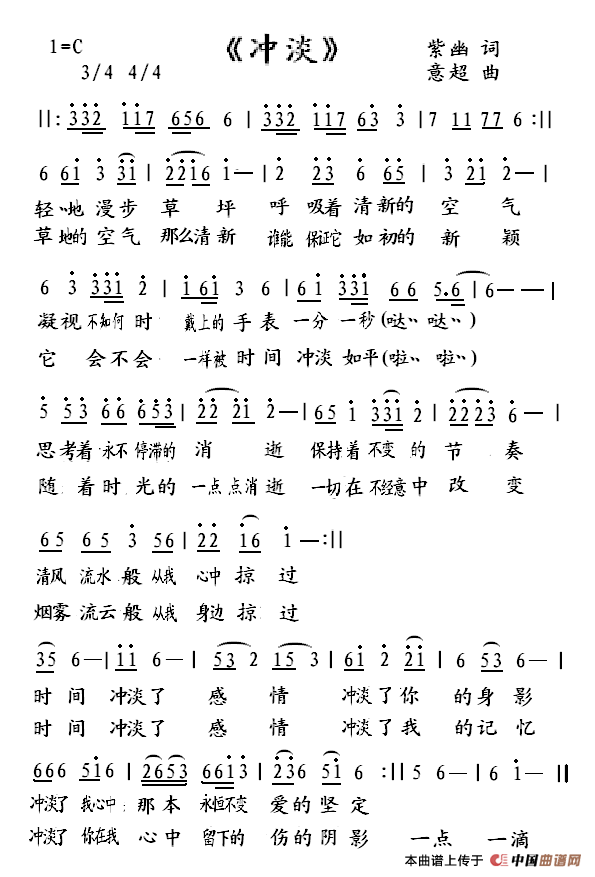 1=C 《冲淡》 紫幽 词
3/4 4/4 意超 曲
||: 332 117 656 6 | 332 117 63 3 | 7 11 77 6 :||
6 61 3 31 | 2216 1— | 2 23 6 65 | 3 21 2— |
轻地漫步草坪呼吸着清新的空气
草地的空气那么清新谁能保证它如初的新颖
6 3 331 2 | 161 3 6 | 61 331 66 5.6 | 6— |
凝视不知何时戴上的手表一分一秒(哒哒)
它会不会一样被时间冲淡如平(啦啦)
5 53 66 653 | 22 21 2— | 65 1 331 2 | 2223 6— |
思考着永不停滞的消逝保持着不变的节奏
随着时光的一点点消逝一切在不经意中改变
65 65 3 56 | 22 16 1—:||
清风流水般从我心中掠过
烟雾流云般从我身边掠过
35 6— | 11 6— | 53 2 15 3 | 61 2 21 | 6 53 6 |
时间冲淡了感情冲淡了你的身影
时间冲淡了感情冲淡了我的记忆
666 516 | 2653 6613 | 236 51 6 :|| 5 6— | 6 1— ||
冲淡了我心中那本永恒不变爱的坚定
冲淡了你在我心中留下的伤的阴影一点一滴
本曲谱上传于 中国曲谱网